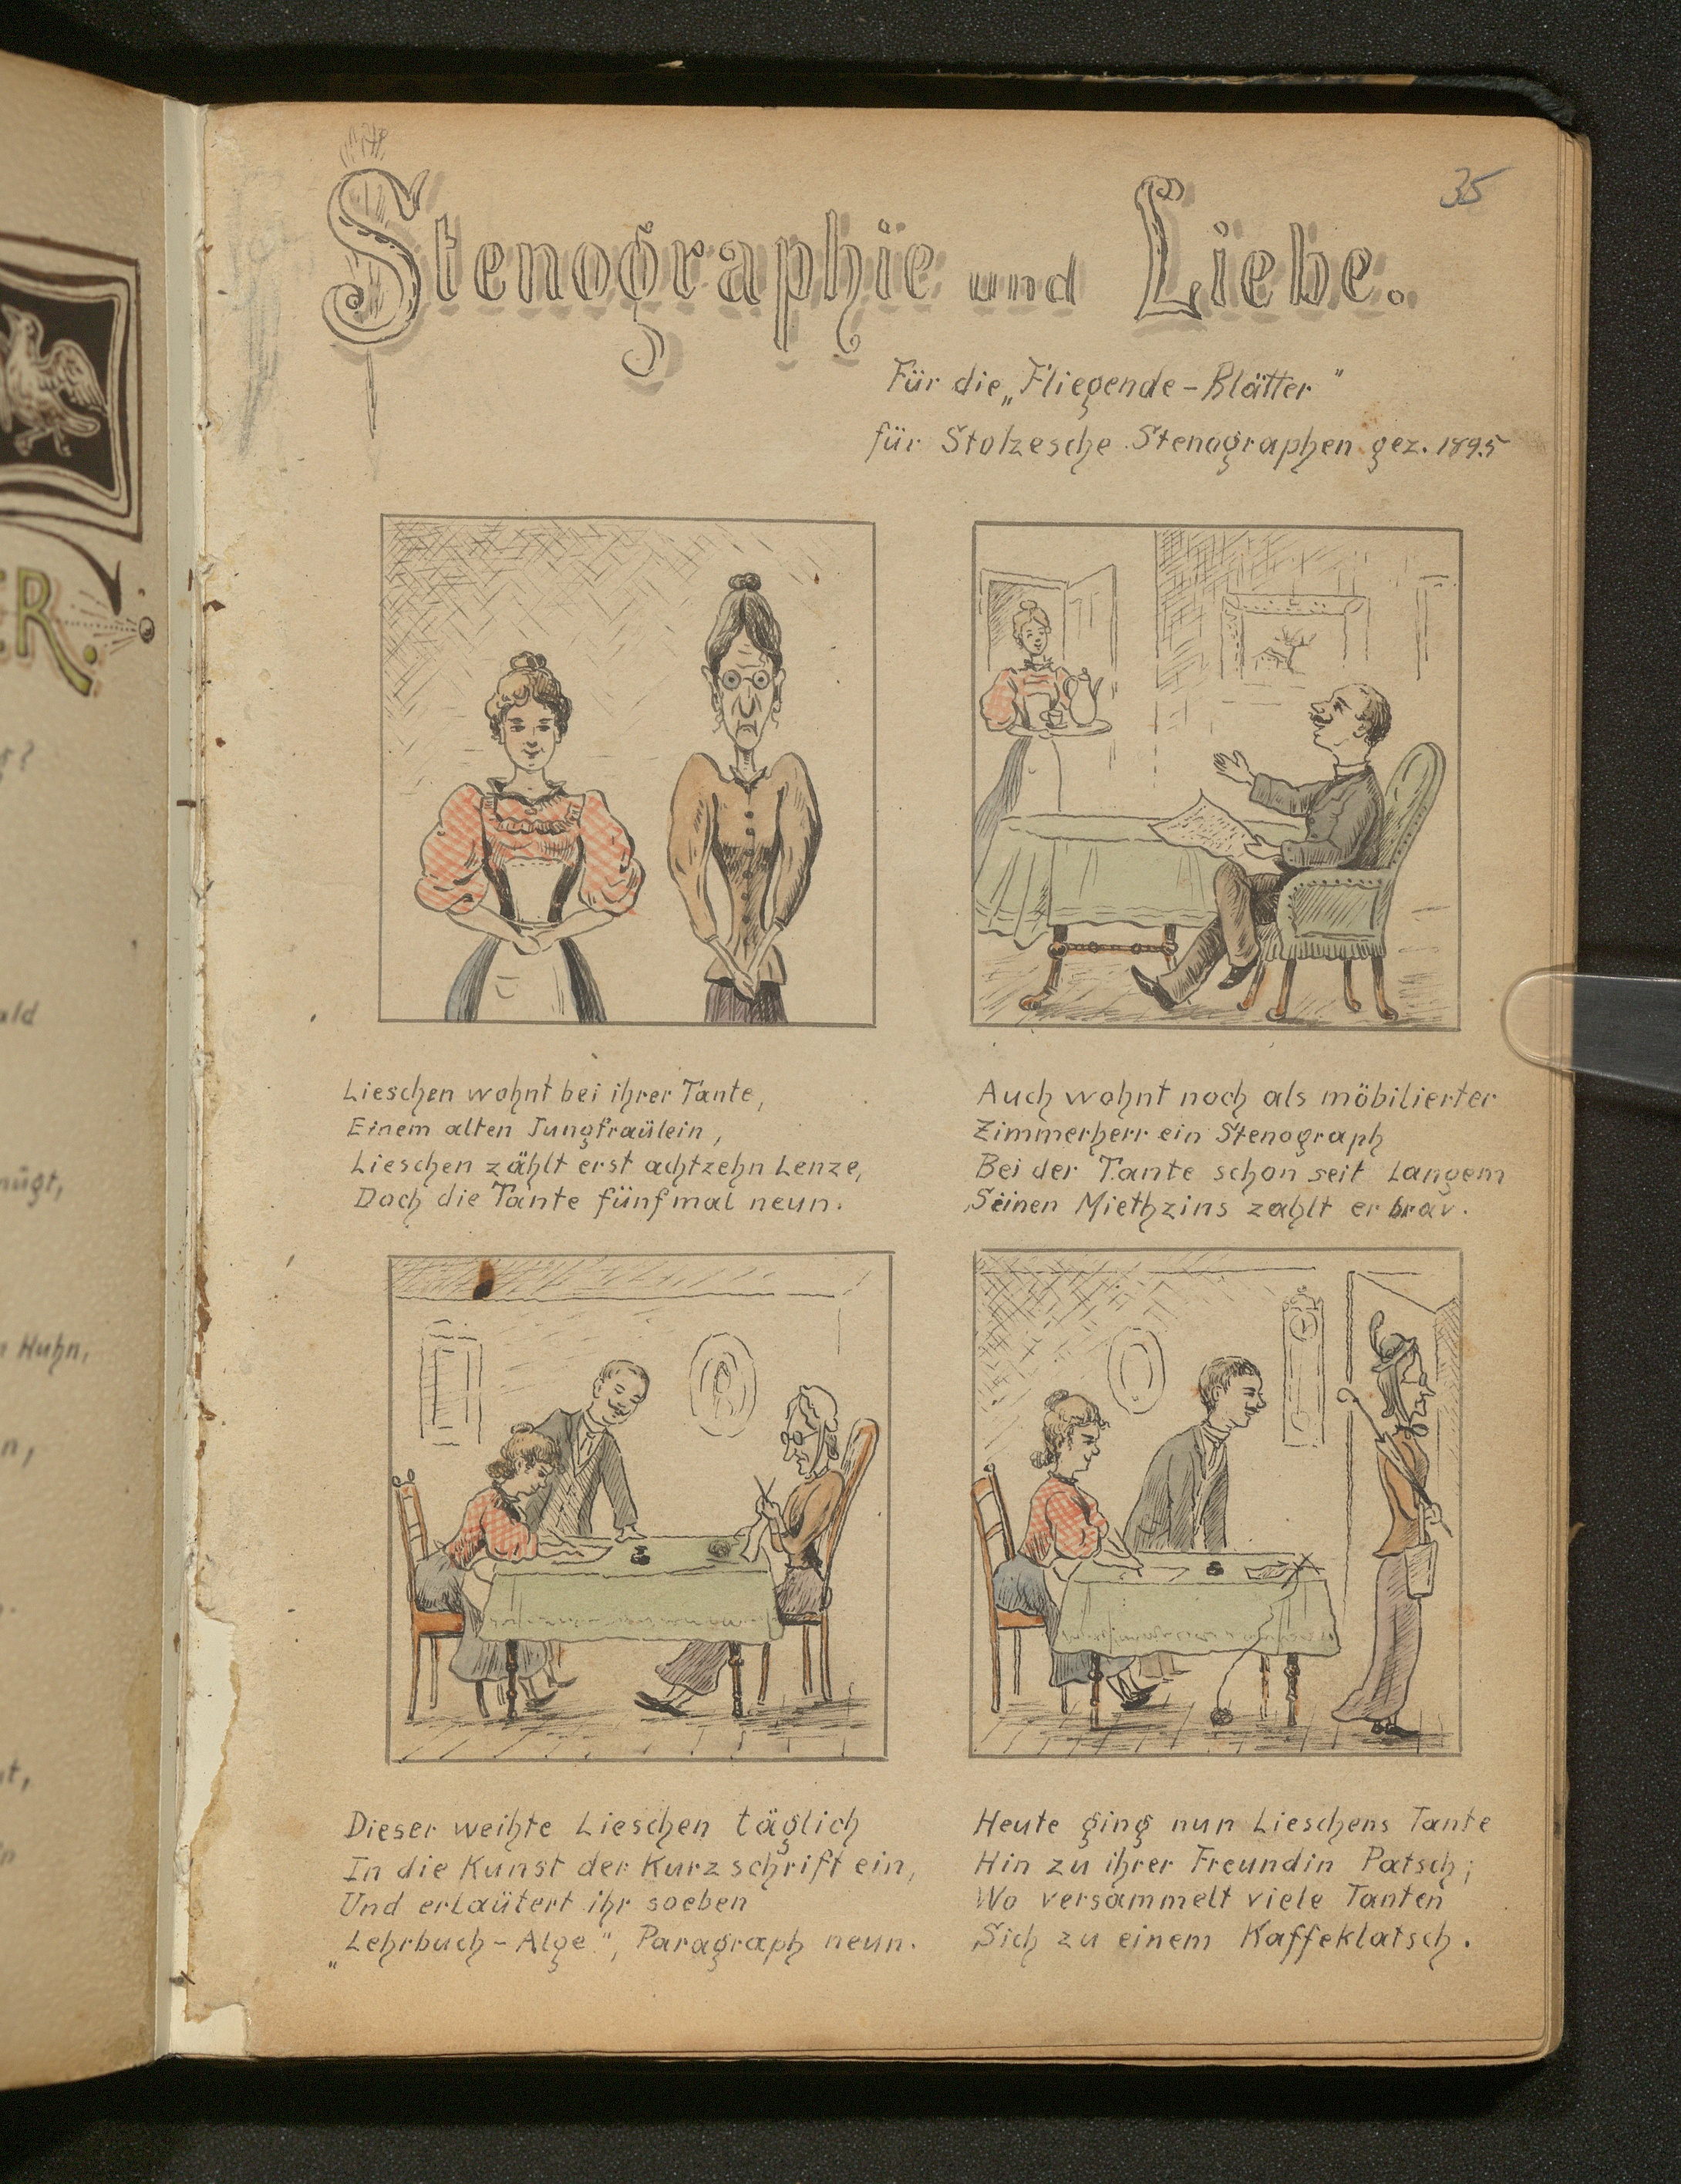 35
Stenographie und Liebe.
Für die „Fliegende-Blätter"
für Stolzesche Stenographen gez. 1895
Lieschen wohnt bei ihrer Tante,
Einem alten Jungfraülein,
Lieschen zählt erst achtzehn Lenze,
Doch die Tante fünfmal neun.
Auch wohnt noch als möbilierter
Zimmerherr ein Stenograph
Bei der Tante schon seit Langem
Seinen Miethzins zahlt er brav.
Dieser weihte Lieschen täglich
In die Kunst der Kurzschrift ein,
Und erlaütert ihr soeben
„Lehrbuch-Alge", Paragraph neun.
Heute ging nun Lieschens Tante
Hin zu ihrer Freundin Patsch;
Wo versammelt viele Tanten
Sich zu einem Kaffeklatsch.
ER.
Huhn,